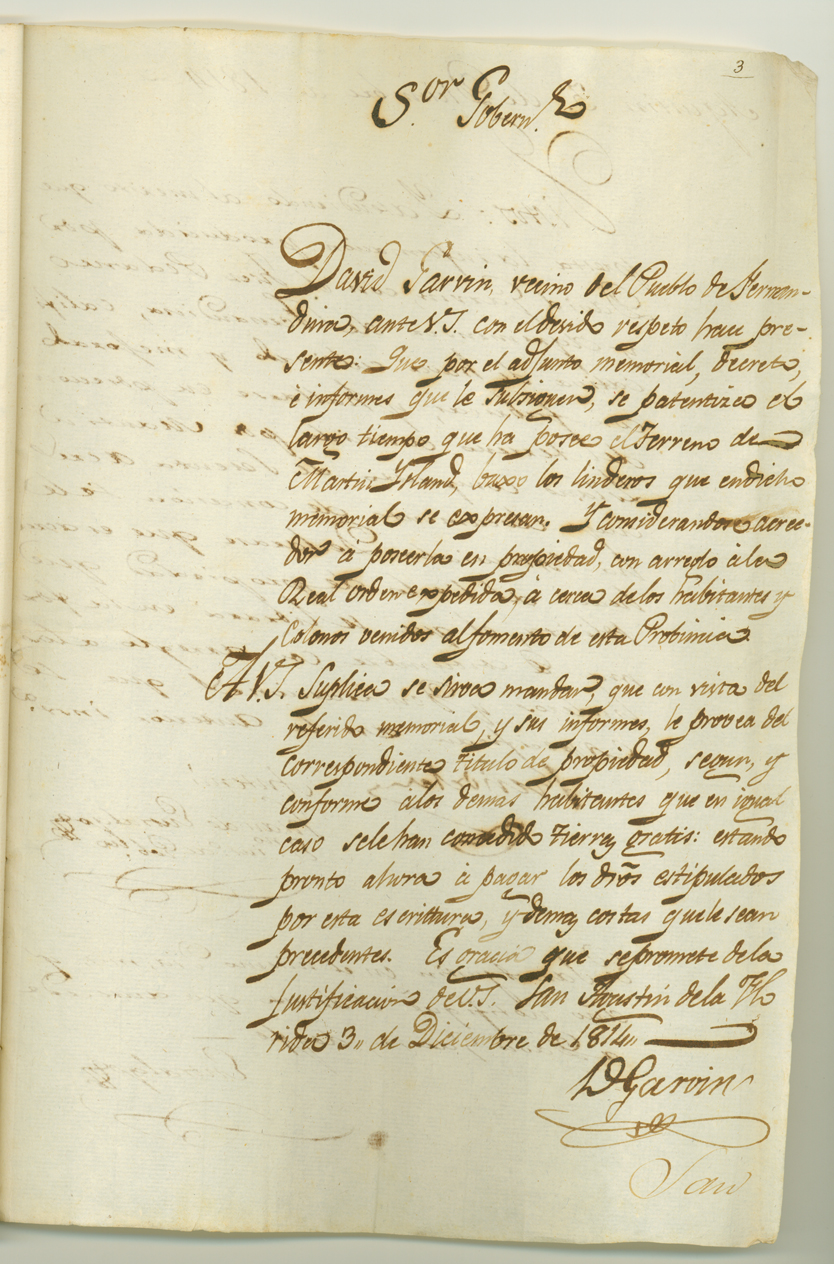 3
S.or Gobern.r
David Garvin, vecino del Pueblo de Fernan-
dina, ante V.S. con el devido respeto hace pre-
sente: Que por el adjunto memorial, decreto,
é informes que le subsiguen, se patentiza el
largo tiempo que ha posee el Terreno de
Martin Ysland, baxo los linderos que en dicho
memorial se expresan. Y considerandose acree-
dor á poseerla en propiedad, con arreglo á la
Real orden expedida, á cerca de los habitantes y
Colonos venidos al fomento de esta Probincia.
A V.S. Suplica se sirva mandar, que con vista del
referido memorial, y sus informes, le provea del
correspondiente titulo de propiedad, segun, y
conforme á los demas habitantes que en igual
caso se le han concedido tierras gratis: estando
pronto ahora á pagar los dros estipulados
por esta escrittura, y demas costas que le sean
precedentes. Es gracia que se promete de la
Justificacion de V.S. San Agustin de la Flo
rida 3,, de Diciembre de 1814,,
D Garvin
San